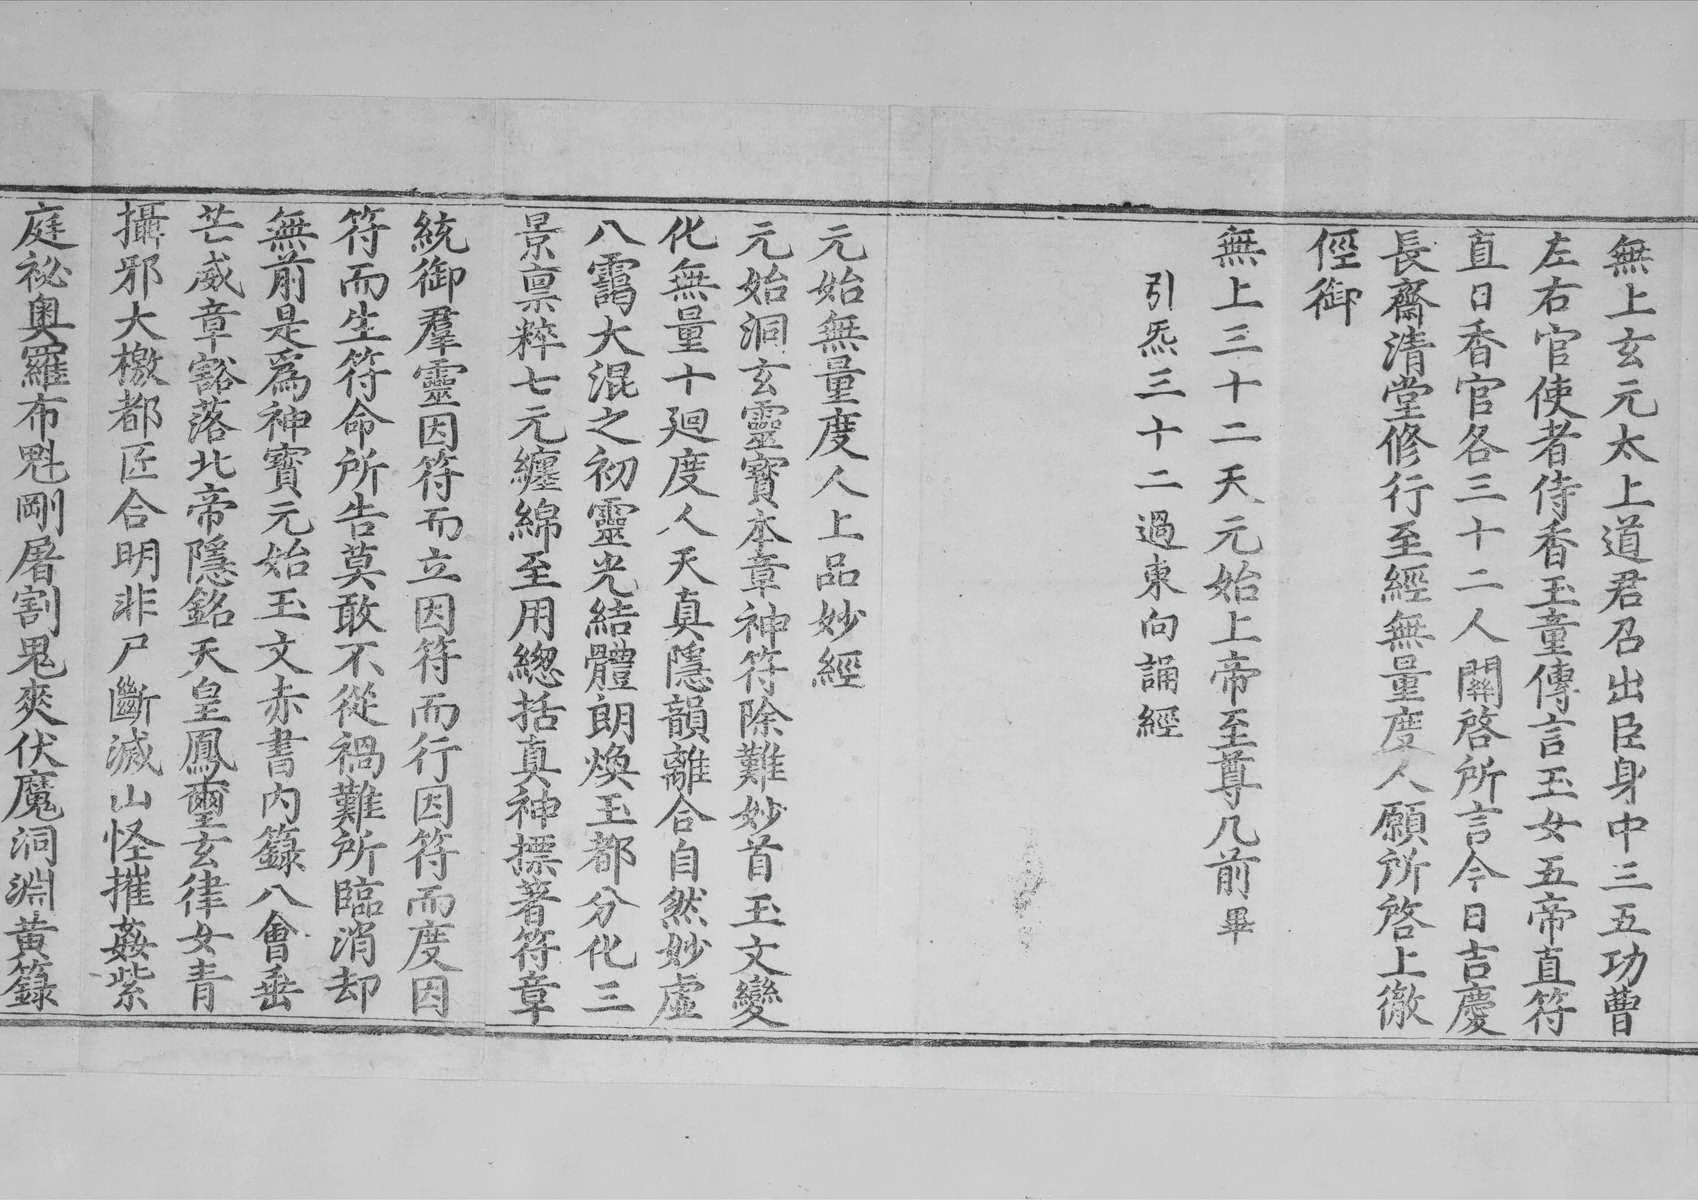 無上玄元太上道君召出臣身中三五功曹
左右官使者侍香玉童傳言玉女五帝直符
直日香官各三十二人關啓所言今日吉慶
長齋清堂修行至經無量度人願所啓上徹
徑御
無上三十二天元始上帝至尊几前畢
引炁三十二過東向誦經
元始無量度人上品妙經
元始洞玄靈寶本章神符除難妙首玉文變
化無量十廻度人天真隱韻離合自然妙虛
八靄大混之初靈光結體朗煥玉都分化三
景禀粹七元纏綿至用緫括真神摽著符章
統御羣靈因符而立因符而行因符而度因
符而生符命所告莫敢不從禍難所臨消却
無前是爲神寶元始玉文赤書内籙八會垂
芒威章豁落北帝隱銘天皇鳳璽玄律女青
攝邪大檄都匠合明非尸斷滅山怪摧姦紫
庭祕奧羅布魁剛屠割鬼爽伏魔洞淵黄籙